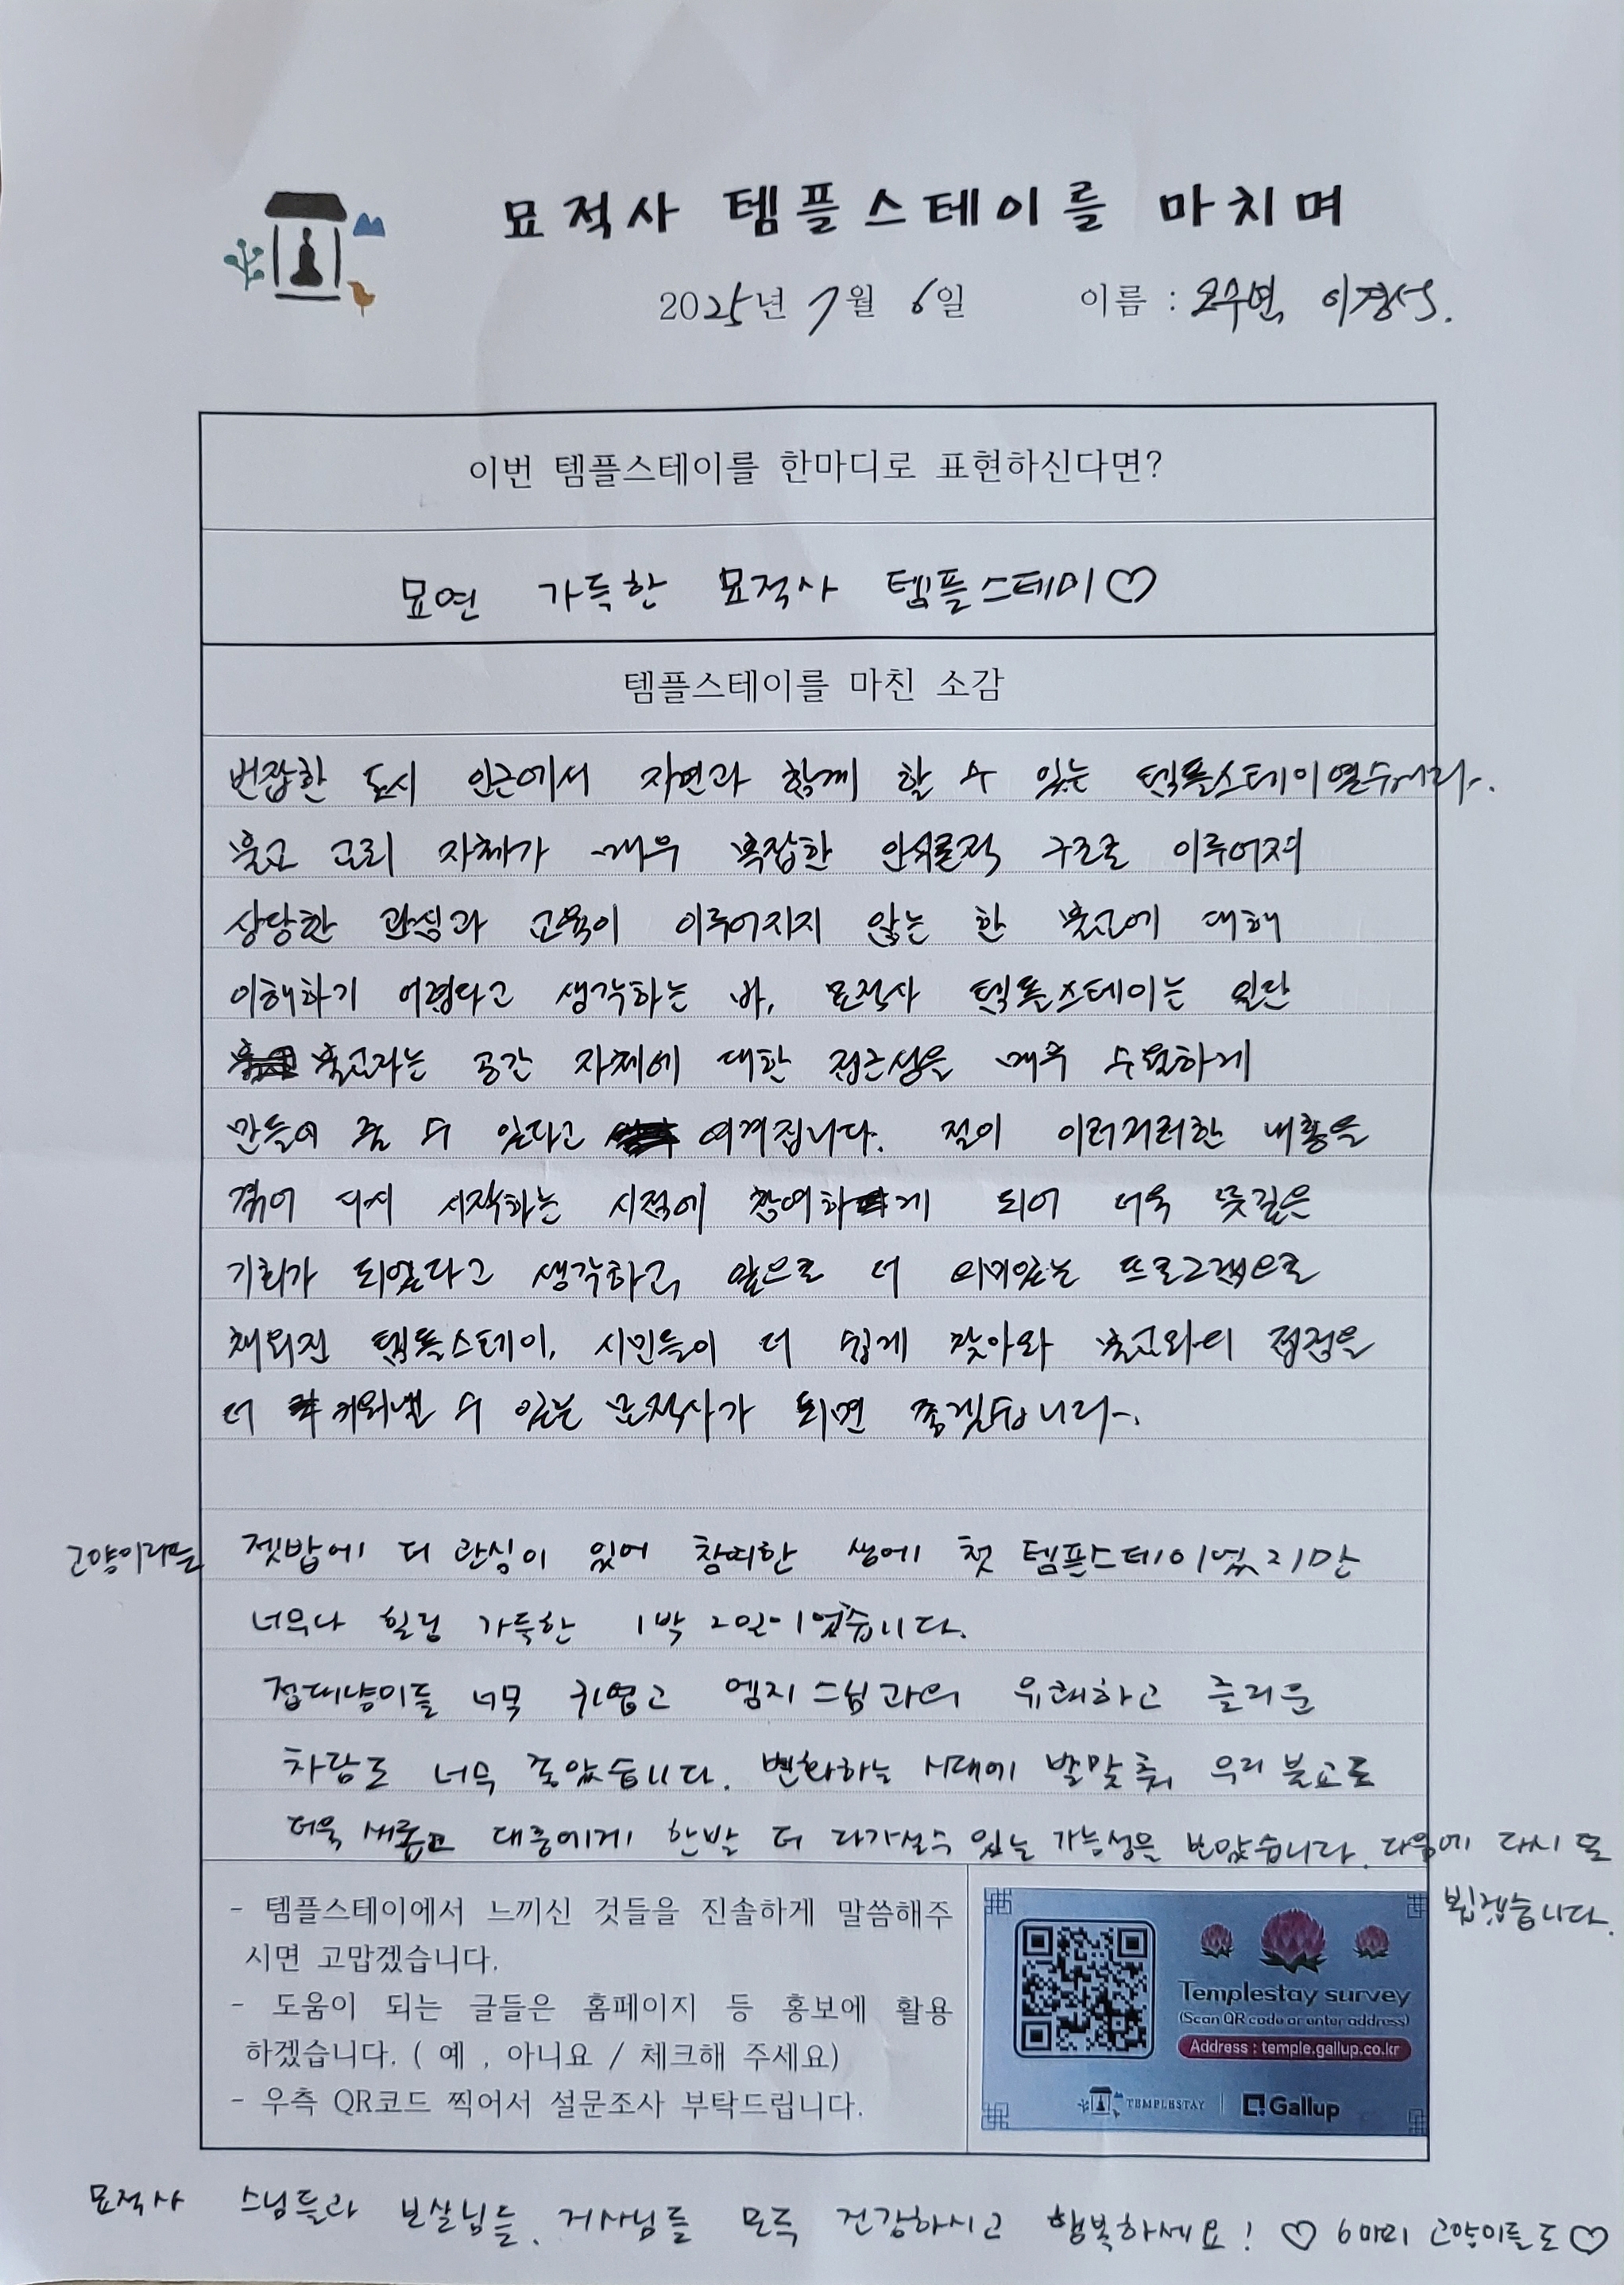 묘적사 템플스테이를 마치며
2025년 7월 6일 이름 : 오수변, 이경서.
이번 템플스테이를 한마디로 표현하신다면?
묘연 가득한 묘적사 템플스테이♡
템플스테이를 마친 소감
번잡한 도시 인근에서 자연과 함께 할 수 있는 템플스테이였습니다.
불교 교리 자체가 매우 복잡한 인식론적 구조로 이루어져
상당한 관심과 교육이 이루어지지 않는 한 불교에 대해
이해하기 어렵다고 생각하는 바, 묘적사 템플스테이는 일단
불교라는 공간 자체에 대한 접근성을 매우 수월하게
만들어 줄 수 있다고 여겨집니다. 절이 이러저러한 내홍을
겪어 다시 시작하는 시점에 참여하게 되어 더욱 뜻깊은
기회가 되었다고 생각하고, 앞으로 더 의미있는 프로그램으로
채워진 템플스테이, 시민들이 더 쉽게 찾아와 불교와의 접점을
더 키워낼 수 있는 묘적사가 되면 좋겠습니다.
고양이라는 젯밥에 더 관심이 있어 참여한 생에 첫 템플스테이였지만
너무나 힐링 가득한 1박 2일이었습니다.
접대냥이들 너무 귀엽고 엠지스님과의 유쾌하고 즐거운
차담도 너무 좋았습니다. 변화하는 시대에 발맞춰 우리 불교도
더욱 새롭고 대중에게 한발 더 다가설수 있는 가능성을 보았습니다. 다음에 다시 또
뵙겠습니다.
- 템플스테이에서 느끼신 것들을 진솔하게 말씀해주
시면 고맙겠습니다.
- 도움이 되는 글들은 홈페이지 등 홍보에 활용
하겠습니다. ( 예 , 아니요 / 체크해 주세요)
- 우측 QR코드 찍어서 설문조사 부탁드립니다.
Templestay survey
(Scan QR code or enter address)
Address : temple.gallup.co.kr
TEMPLESTAY
Gallup
묘적사 스님들과 보살님들, 거사님들 모두 건강하시고 행복하세요! ♡ 6마리 고양이들도♡